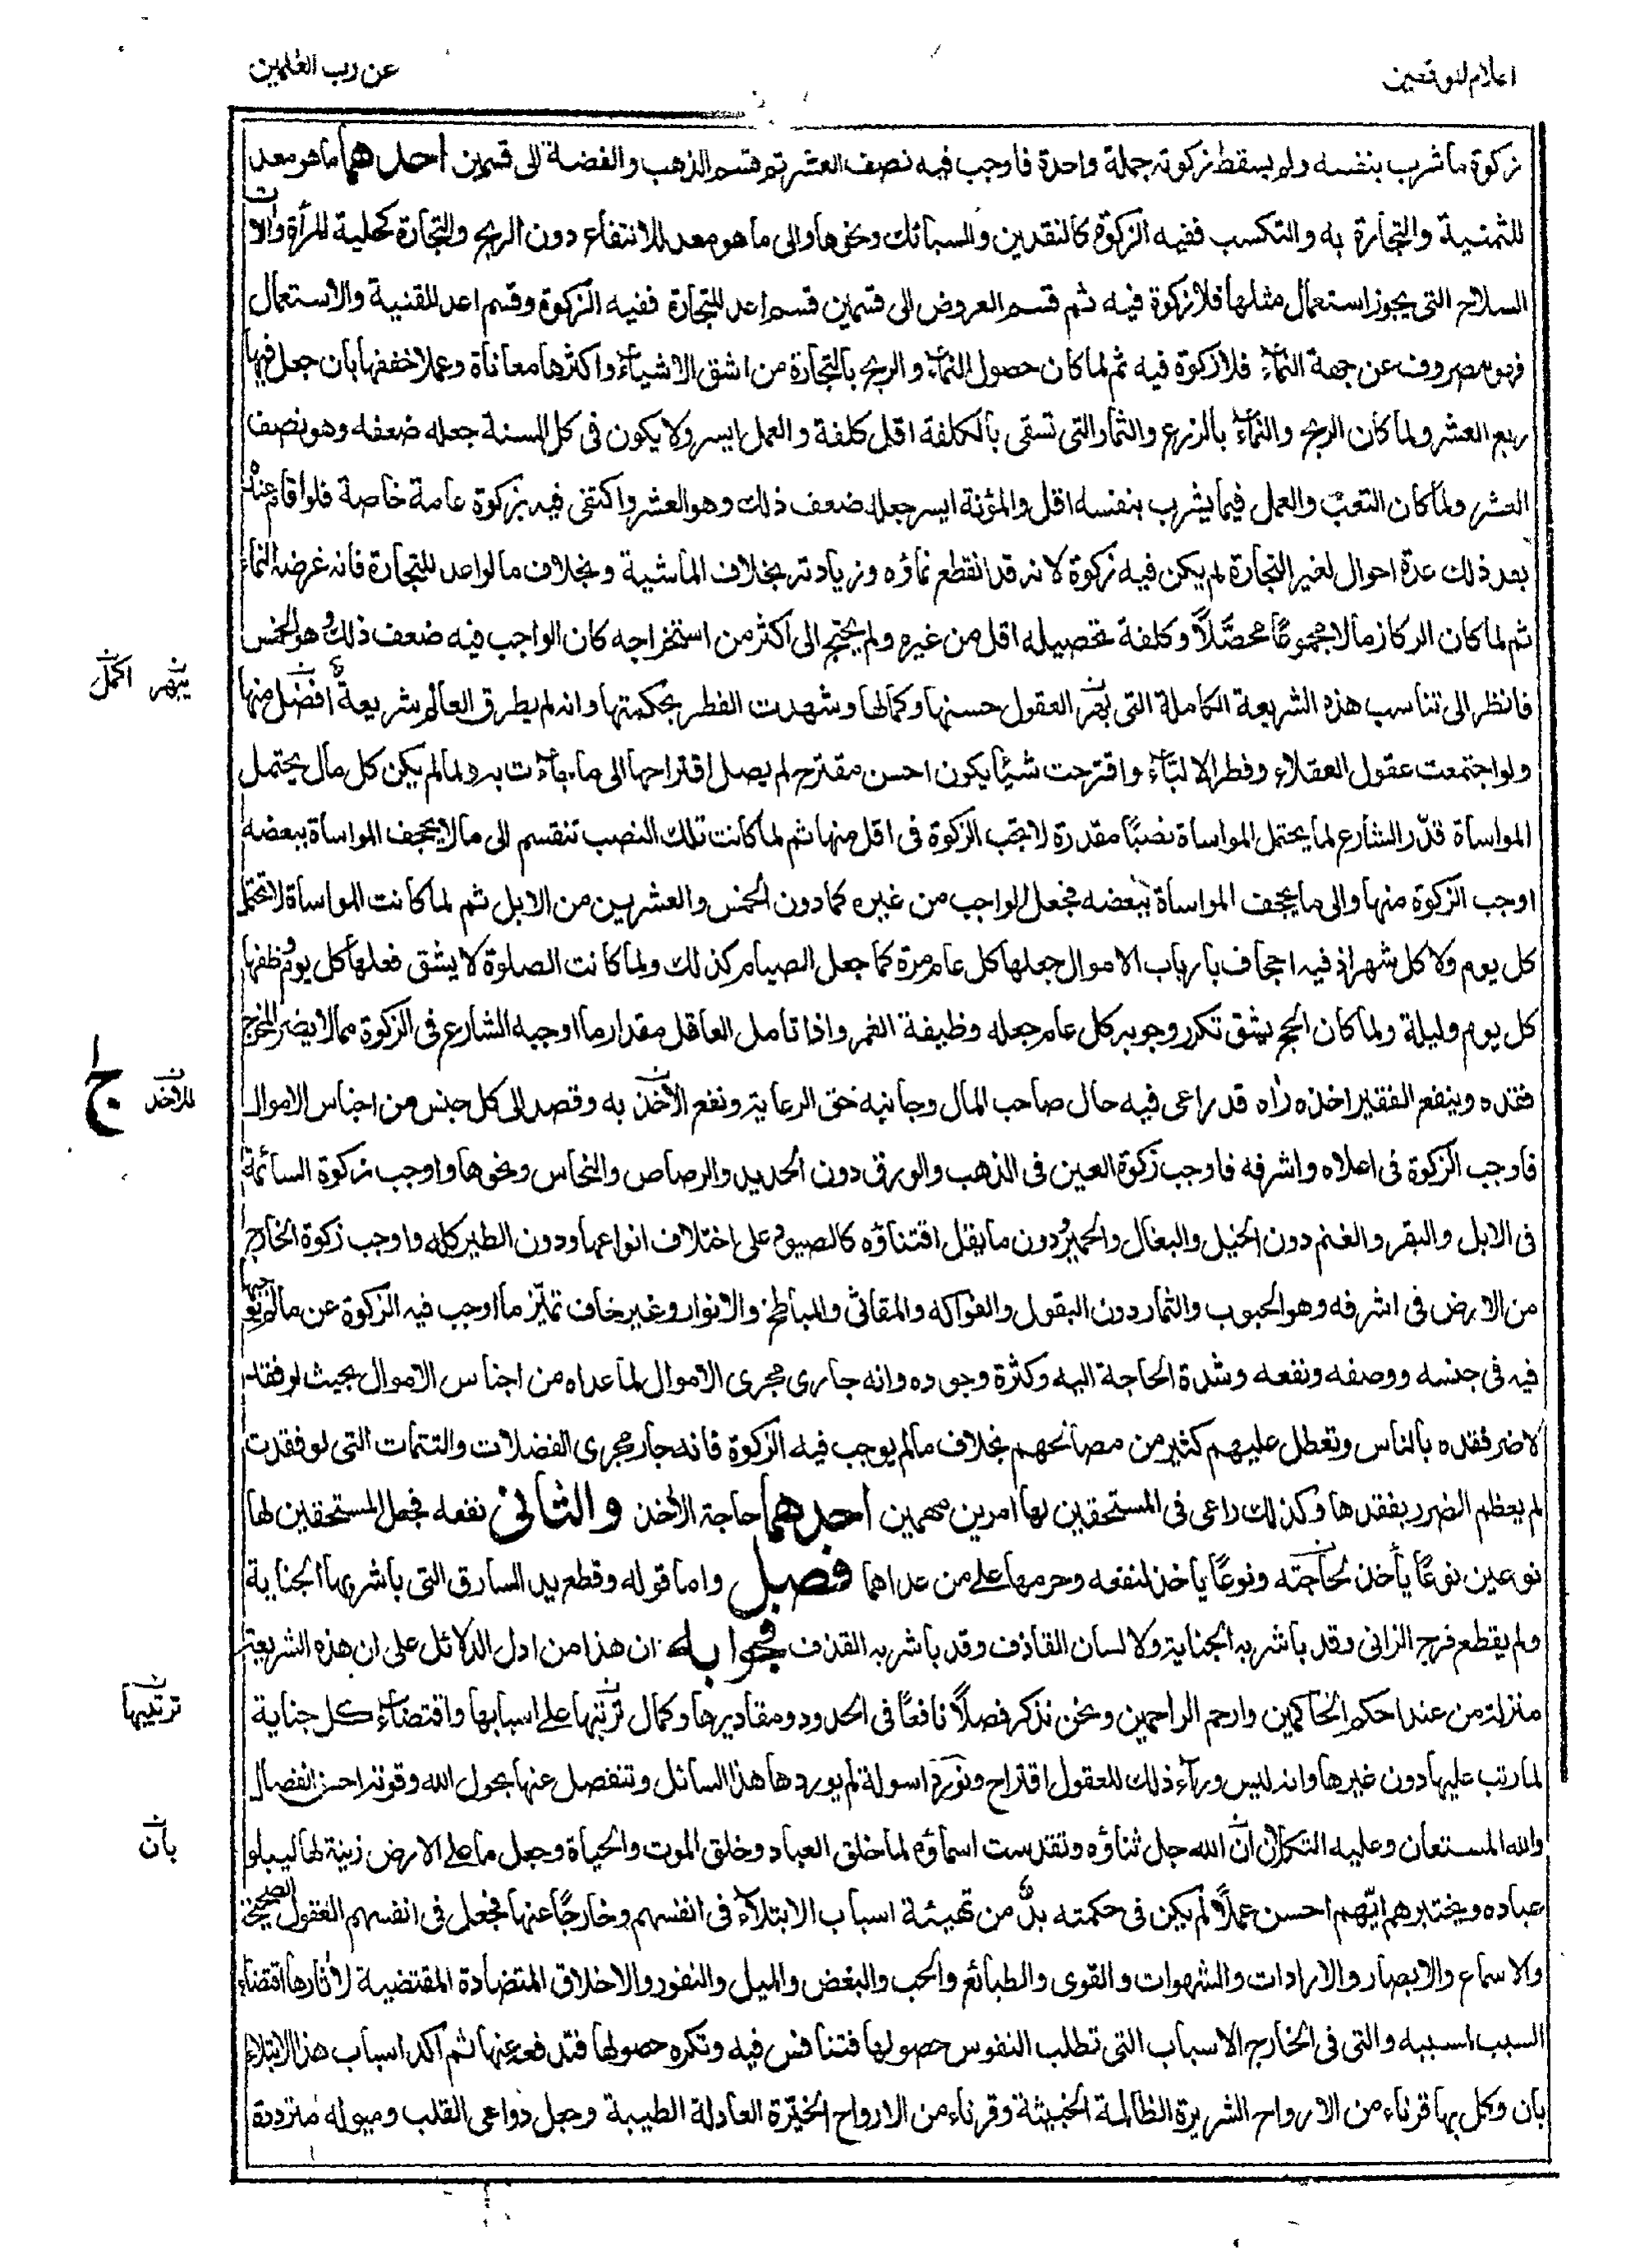 اعلام الموقعين
عن رب العٰلمين
زكوة ما شرب بنفسه ولم يسقط زكوته جملة واحدة فاوجب فيه نصف العشر ثم قسم الذهب والفضة الى قسمين احدهما ما هو معد
للثمنية والتجارة به والتكسب ففيه الزكوة كالنقدين والسبائك ونحوها والى ما هو معد للانتفاع دون الربح والتجارة كحلية المرأة وآلات
السلاح التى يجوز استعمال مثلها فلا زكوة فيه ثم قسم العروض الى قسمين قسم اعد للتجارة ففيه الزكوة وقسم اعد للقنية والاستعمال
فهو مصروف عن جهة النماء فلا زكوة فيه ثم لما كان حصول النماء والربح بالتجارة من اشق الاشياء واكثرها معاناة وعملا خففها بان جعل فيها
ربع العشر ولما كان الربح والنماء بالزرع والثمار التى تسقى بالكلفة اقل كلفة والعمل ايسر ولا يكون فى كل السنة جعله ضعفه وهو نصف
العشر ولما كان التعب والعمل فيما يشرب بنفسه اقل والمؤنة ايسر جعله ضعف ذلك وهو العشر واكتفى فيه بزكوة عامة خاصة فلو اقام عنده
بعد ذلك عدة احوال لغير التجارة لم يكن فيه زكوة لانه قد انقطع نماؤه وزيادته بخلاف الماشية وبخلاف ما لو اعد للتجارة فانه عرضة للنماء
ثم لما كان الركاز مالا مجموعًا محصّلًا وكلفة تحصيله اقل من غيره ولم يحتج الى اكثر من استخراجه كان الواجب فيه ضعف ذلك وهو الخمس
فانظر الى تناسب هذه الشريعة الكاملة التى بَهَرَ العقول حسنها وكمالها وشهدت الفطر بحكمتها وانه لم يطرق العالم شريعة افضل منها
يبهر اكمل
ولو اجتمعت عقول العقلاء وفطر الالبّاء واقترحت شيئا يكون احسن مقترح لم يصل اقتراحها الى ما جاءت به ولما لم يكن كل مال يحتمل
المواساة قدّر الشارع لما يحتمل المواساة نصبًا مقدرة لا تجب الزكوة فى اقل منها ثم لما كانت تلك النصب تنقسم الى ما لا يجحف المواساة ببعضه
اوجب الزكوة منها والى ما يجحف المواساة ببعضه فجعل الواجب من غيره كما دون الخمس والعشرين من الابل ثم لما كانت المواساة لا تحتمل
كل يوم ولا كل شهر اذ فيه اجحاف بارباب الاموال جعلها كل عام مرة كما جعل الصيام كذلك ولما كانت الصلوة لا يشق فعلها كل يوم وظفها
كل يوم وليلة ولما كان الحج يشق تكرر وجوبه كل عام جعله وظيفة العمر واذا تامل العاقل مقدار ما اوجبه الشارع فى الزكوة مما لا يضر المخرج
فقده وينفع الفقير اخذه راٰه قد راعى فيه حال صاحب المال وجانبه حق الرعاية ونفع الأخذ به وقصد الى كل جنس من اجناس الاموال
للاٰخذ
ج
فاوجب الزكوة فى اعلاه واشرفه فاوجب زكوة العين فى الذهب والورق دون الحديد والرصاص والنحاس ونحوها واوجب زكوة السائمة
فى الابل والبقر والغنم دون الخيل والبغال والحمير ودون ما يقل اقتناؤه كالصيود على اختلاف انواعها ودون الطير كله واوجب زكوة الخارج
من الارض فى اشرفه وهو الحبوب والثمار دون البقول والفواكه والمقاثى والمباطخ والانوار وغير خاف تميّز ما اوجب فيه الزكوة عن ما لم يوجبها
فيه فى جنسه ووصفه ونفعه وشدة الحاجة اليه وكثرة وجوده وانه جارى مجرى الاموال لما عداه من اجناس الاموال بحيث لو فقد
لاضر فقده بالناس وتعطل عليهم كثير من مصالحهم بخلاف ما لم يوجب فيه الزكوة فانه جار مجرى الفضلات والتتمات التى لو فقدت
لم يعظم الضرر بفقدها وكذلك راعى فى المستحقين لها امرين مهمين احدهما حاجة الأخذ والثانى نفعه فجعل المستحقين لها
نوعين نوعًا يأخذ لحاجته ونوعًا ياخذ لنفعه وحرمها على من عداهما فصل واما قوله وقطع يد السارق التى باشر بها الجناية
ولم يقطع فرج الزانى وقد باشر به الجناية ولا لسان القاذف وقد باشر به القذف فجوابه ان هذا من ادل الدلائل على ان هذه الشريعة
منزلة من عند احكم الحاكمين وارحم الراحمين ونحن نذكر فصلًا نافعًا فى الحدود ومقاديرها وكمال ترتبها على اسبابها واقتضاء كل جناية
ترتيبها
لما رتب عليها دون غيرها وانه ليس وراء ذلك للعقول اقتراح ونورد اسولة لم يوردها هذا السائل وننفصل عنها بحول الله وقوته احسن انفصال
والله المستعان وعليه التكلان انّ الله جل ثناؤه وتقدست اسماؤه لما خلق العباد وخلق الموت والحياة وجعل ما على الارض زينة لها ليبلو
بان
عباده ويختبرهم ايّهم احسن عملًا لم يكن فى حكمته بدٌّ من تهيئة اسباب الابتلاء فى انفسهم وخارجًا عنها فجعل فى انفسهم العقول الصحيحة
والاسماع والابصار والارادات والشهوات والقوى والطبائع والحب والبغض والميل والنفور والاخلاق المتضادة المقتضية لآثارها اقتضاء
السبب لمسببه والتى فى الخارج الاسباب التى تطلب النفوس حصولها فتنافس فيه وتكره حصولها فتدفعه عنها ثم اكد اسباب هذا الابتلاء
بان وكل بها قرناء من الارواح الشريرة الظالمة الخبيثة وقرناء من الارواح الخيّرة العادلة الطيبة وجعل دواعى القلب وميوله مترددة